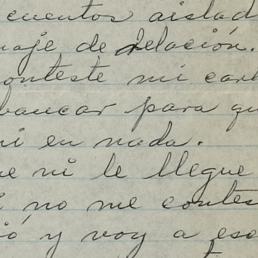 cuentos aislad
naje de relación.
onteste mi cart
bancar para qu
ni en nada.
e ni le llegue
i no me contes
ió y voy a esc